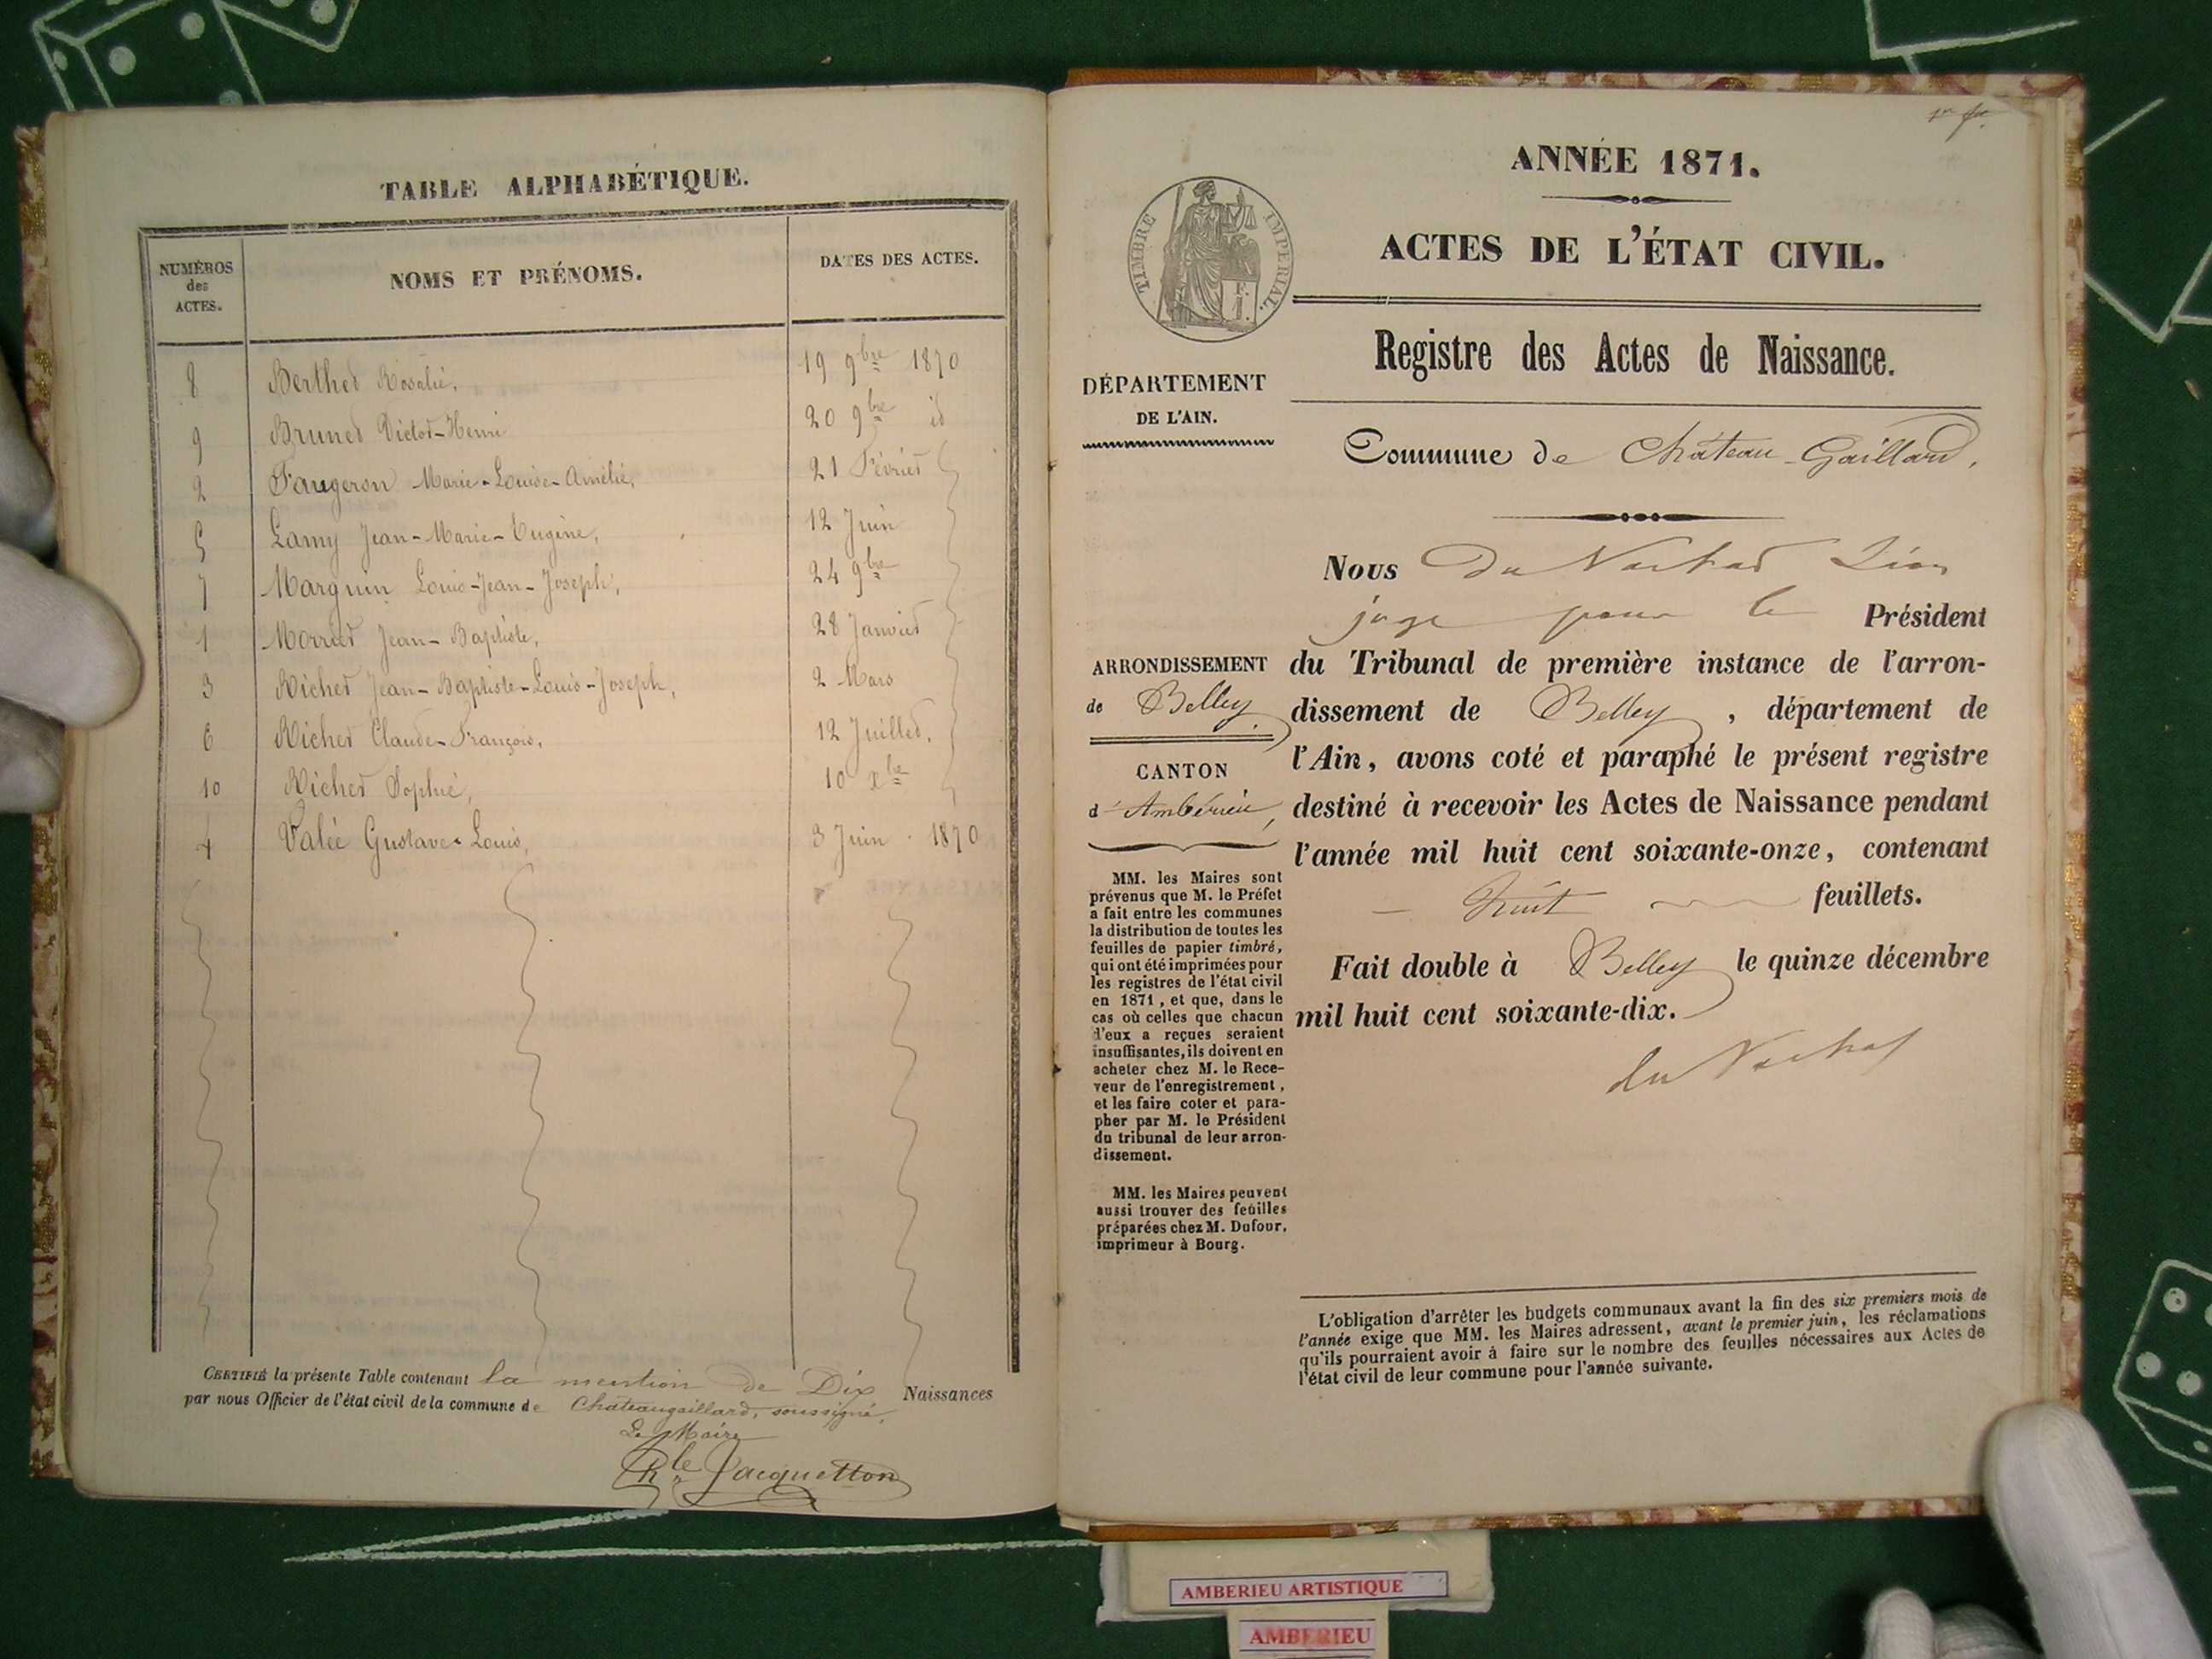 TABLE ALPHABÉTIQUE.
NUMÉROS des ACTES.
NOMS ET PRÉNOMS.
DATES DES ACTES.
8 Berthet Rosalie, 19 9bre 1870
9 Brunet Victor-Henri 20 9bre id
2 Faugeron Marie-Louise-Amélie, 21 Février
5 Lamy Jean-Marie-Eugène, 12 Juin
7 Marguin Louis-Jean-Joseph, 24 9bre
1 Jean-Baptiste, 28 Janvier
3 Richet Jean-Baptiste-Louis-Joseph, 2 Mars
6 Richet Claude-François, 12 Juillet,
10 Richet Sophie, 10 xbre
4 Valée Gustave-Louis, 3 Juin 1870
CERTIFIÉ la présente Table contenant la mention de Dix Naissances
par nous Officier de l'état civil de la commune de Châteaugaillard, soussigné,
Le Maire
Jacquetton
1er f.
ANNÉE 1871.
ACTES DE L'ÉTAT CIVIL.
TIMBRE IMPÉRIAL.
Registre des Actes de Naissance.
DÉPARTEMENT
DE L'AIN.
Commune de Château-Gaillard,
Nous du Nachat Léon
juge pour le Président
ARRONDISSEMENT
de Belley
du Tribunal de première instance de l'arron-
dissement de Belley, département de
l'Ain, avons coté et paraphé le présent registre
CANTON
d'Ambérieu,
destiné à recevoir les Actes de Naissance pendant
l'année mil huit cent soixante-onze, contenant
huit feuillets.
Fait double à Belley le quinze décembre
mil huit cent soixante-dix.
du Nachat
MM. les Maires sont
prévenus que M. le Préfet
a fait entre les communes
la distribution de toutes les
feuilles de papier timbré,
qui ont été imprimées pour
les registres de l'état civil
en 1871, et que, dans le
cas où celles que chacun
d'eux a reçues seraient
insuffisantes, ils doivent en
acheter chez M. le Rece-
veur de l'enregistrement,
et les faire coter et para-
pher par M. le Président
du tribunal de leur arron-
dissement.
MM. les Maires peuvent
aussi trouver des feuilles
préparées chez M. Dufour,
imprimeur à Bourg.
L'obligation d'arrêter les budgets communaux avant la fin des six premiers mois de
l'année exige que MM. les Maires adressent, avant le premier juin, les réclamations
qu'ils pourraient avoir à faire sur le nombre des feuilles nécessaires aux Actes de
l'état civil de leur commune pour l'année suivante.
AMBERIEU ARTISTIQUE
AMBERIEU